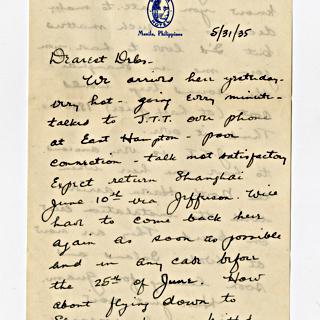 Manila, Philippines
5/31/35
Dearest Debs-
We arrived here yesterday-
very hot - going every minute-
talked to J.T.T. over phone
at East Hampton - poor
connection - talk not satisfactory
Expect return Shanghai
June 10th via Jefferson. Will
have to come back here
again as soon as possible
and in any case before
the 25th of June. How
about flying down to